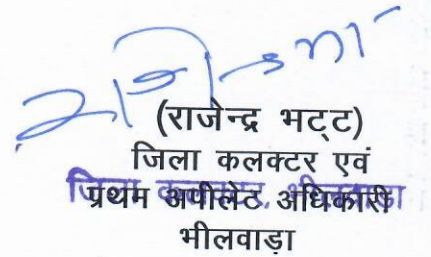 (राजेन्द्र भट्ट)
जिला कलक्टर एवं
प्रथम अपीलेट अधिकारी
जिला कलक्टर, भीलवाड़ा
भीलवाड़ा